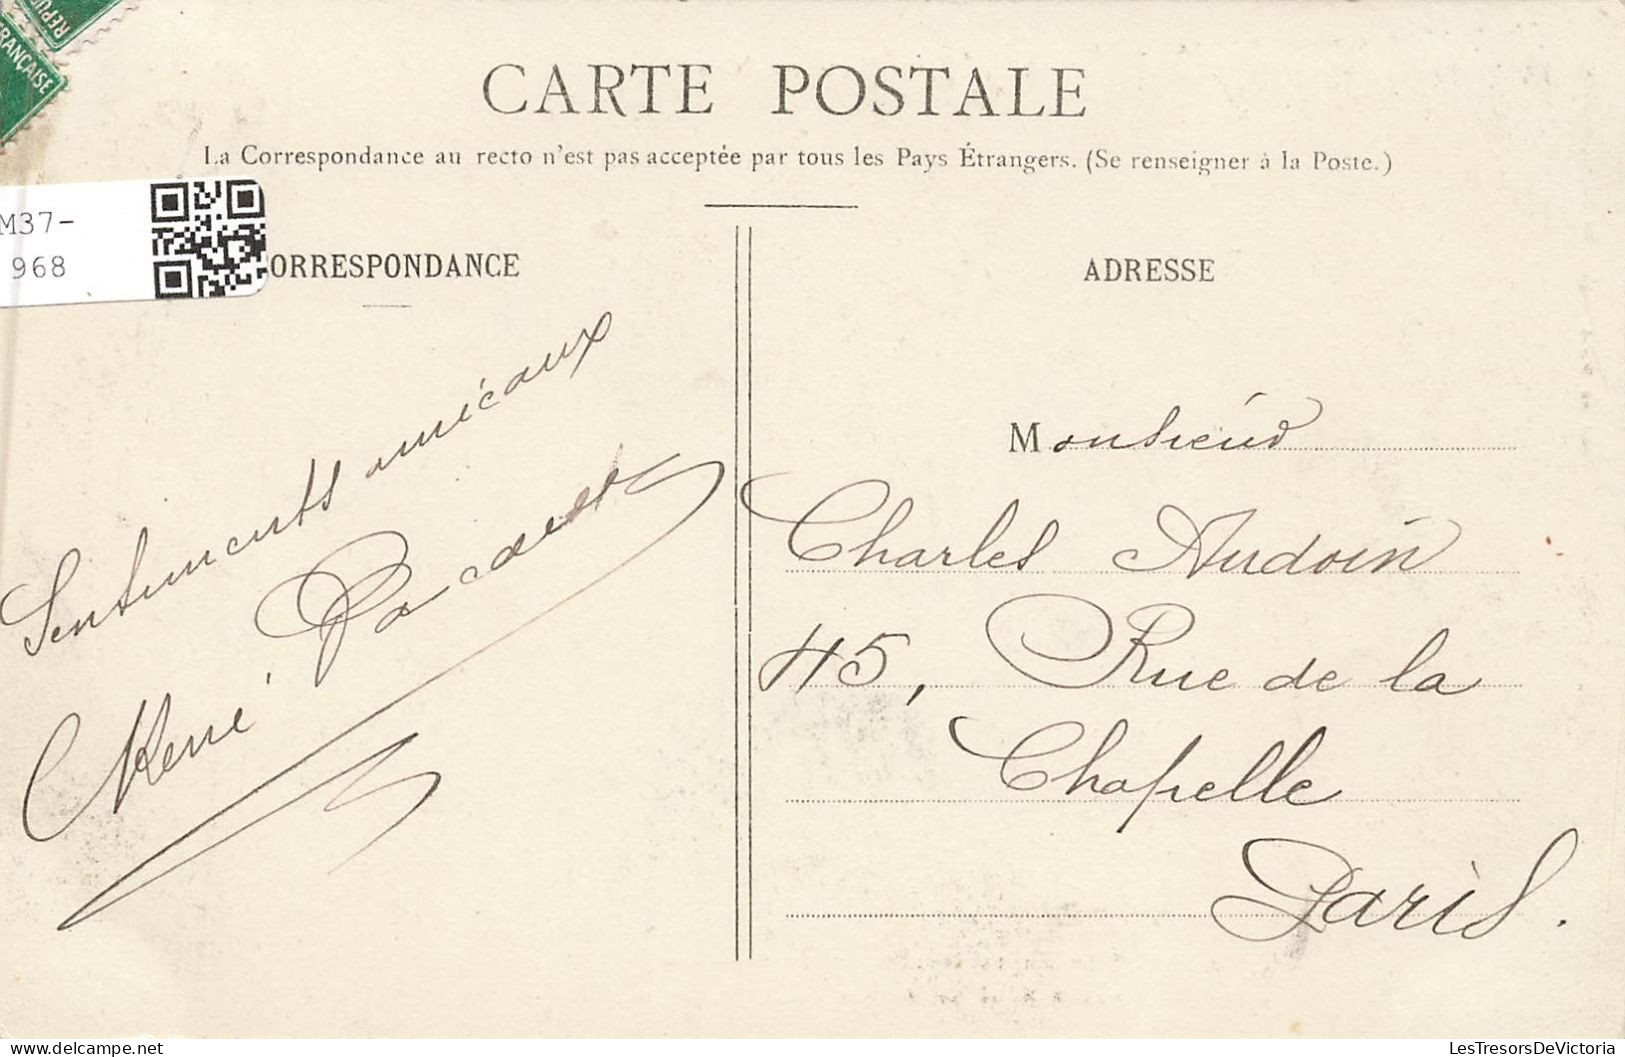 RÉPU
FRANÇAISE
CARTE POSTALE
La Correspondance au recto n'est pas acceptée par tous les Pays Étrangers. (Se renseigner à la Poste.)
M37-
968
ORRESPONDANCE
Sentiments amicaux
René
ADRESSE
Monsieur
Charles Audoin
45, Rue de la
Chapelle
Paris.
delcampe.net
LesTresorsDeVictoria